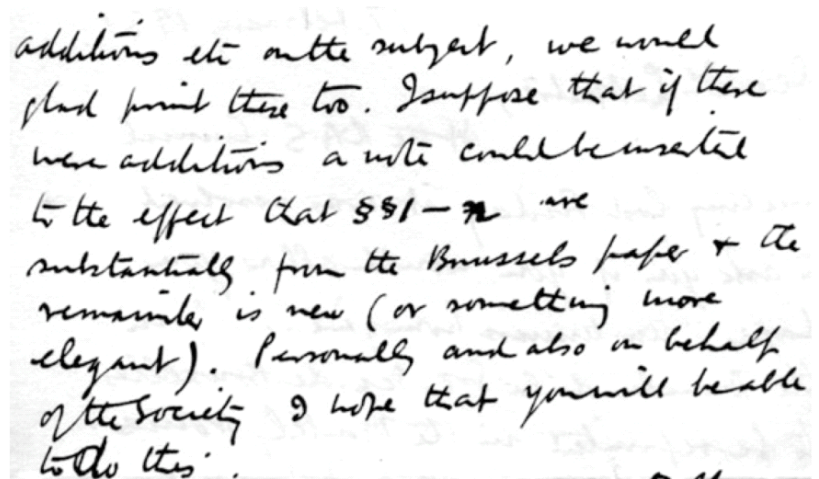 additions etc on the subject, we would
glad print these too. I suppose that if there
were additions a note could be inserted
to the effect that §§1 — n are
substantially from the Brussels paper + the
remainder is new (or something more
elegant). Personally and also on behalf
of the Society I hope that you will be able
to do this.